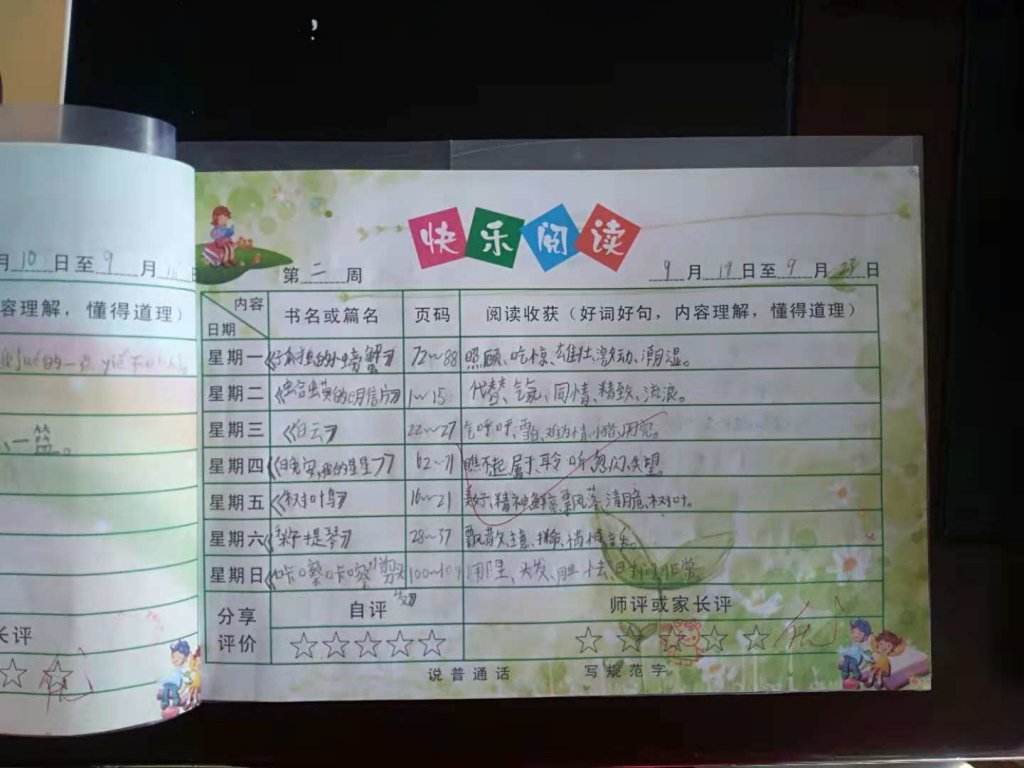 月10日至9月
容理解，懂得道理）
长评
快乐阅读
第二周
9月19日至9月25日
内容
日期
书名或篇名 页码 阅读收获（好词好句，内容理解，懂得道理）
星期一 《孤独的小螃蟹》 72～88 照顾、吃惊、雄壮、激动、潮湿。
星期二 明信片》 1～15 代替、气氛、同情、精致、流浪。
星期三 《白云》 22～27 气呼呼、雪白、难为情、小猪、
星期四 《晚安,我的星星》 62～71 瞧不起、属于、聆听、失望
星期五 《树叶鸟》 16～21 美好、精神、鲜亮、飘落、清脆、树叶。
星期六 提琴》 28～37 飘散、主意、拼命、悄悄、音乐。
星期日 《咔嚓咔嚓 100～ 那里、大发、胆怯、非常。
分享评价
自评 师评或家长评
☆☆☆☆☆ ☆☆☆☆☆
说普通话 写规范字